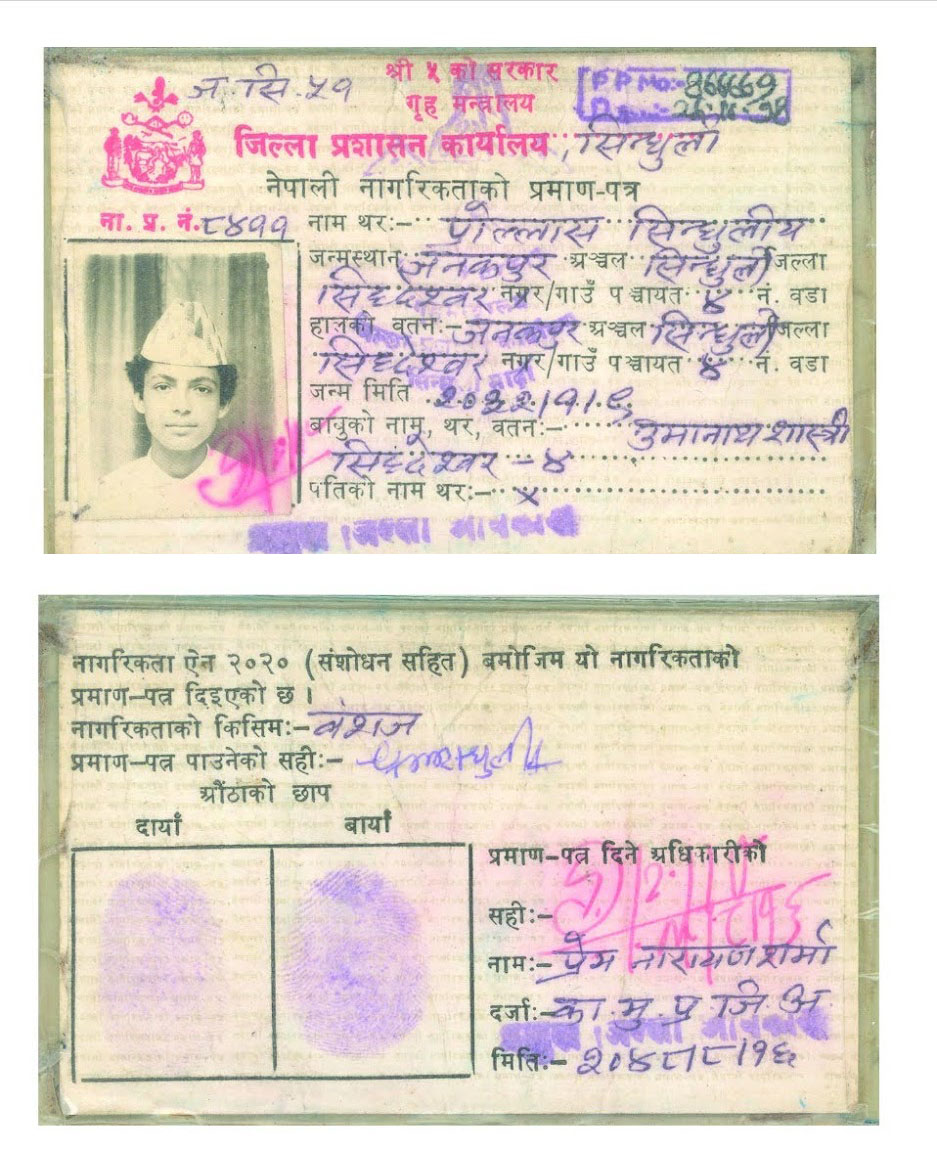 ज. सि. ५१
श्री ५ को सरकार
गृह मन्त्रालय
P P No:-
जिल्ला प्रशासन कार्यालय, सिन्धुली
नेपाली नागरिकताको प्रमाण-पत्र
ना. प्र. नं. ८४११
नाम थर:- प्रोल्लास सिन्धुलीय
जन्मस्थान जनकपुर अञ्चल सिन्धुली जिल्ला
सिद्धेश्वर नगर/गाउँ पञ्चायत ४ नं. वडा
हालको वतन:- जनकपुर अञ्चल सिन्धुली जिल्ला
सिद्धेश्वर नगर/गाउँ पञ्चायत ४ नं. वडा
जन्म मिति
बाबुको नाम, थर, वतन:- उमानाथ शास्त्री
सिद्धेश्वर - ४
पतिको नाम थर:- ×
नागरिकता ऐन २०२० (संशोधन सहित) बमोजिम यो नागरिकताको
प्रमाण-पत्र दिइएको छ ।
नागरिकताको किसिम:- वंशज
प्रमाण-पत्र पाउनेको सही:-
औंठाको छाप
दायाँ बायाँ
प्रमाण-पत्र दिने अधिकारीको
सही:-
नाम:- प्रेम नारायण शर्मा
दर्जा:- का. मु. प्र. जि. अ
मिति:- २०४८।८।१६